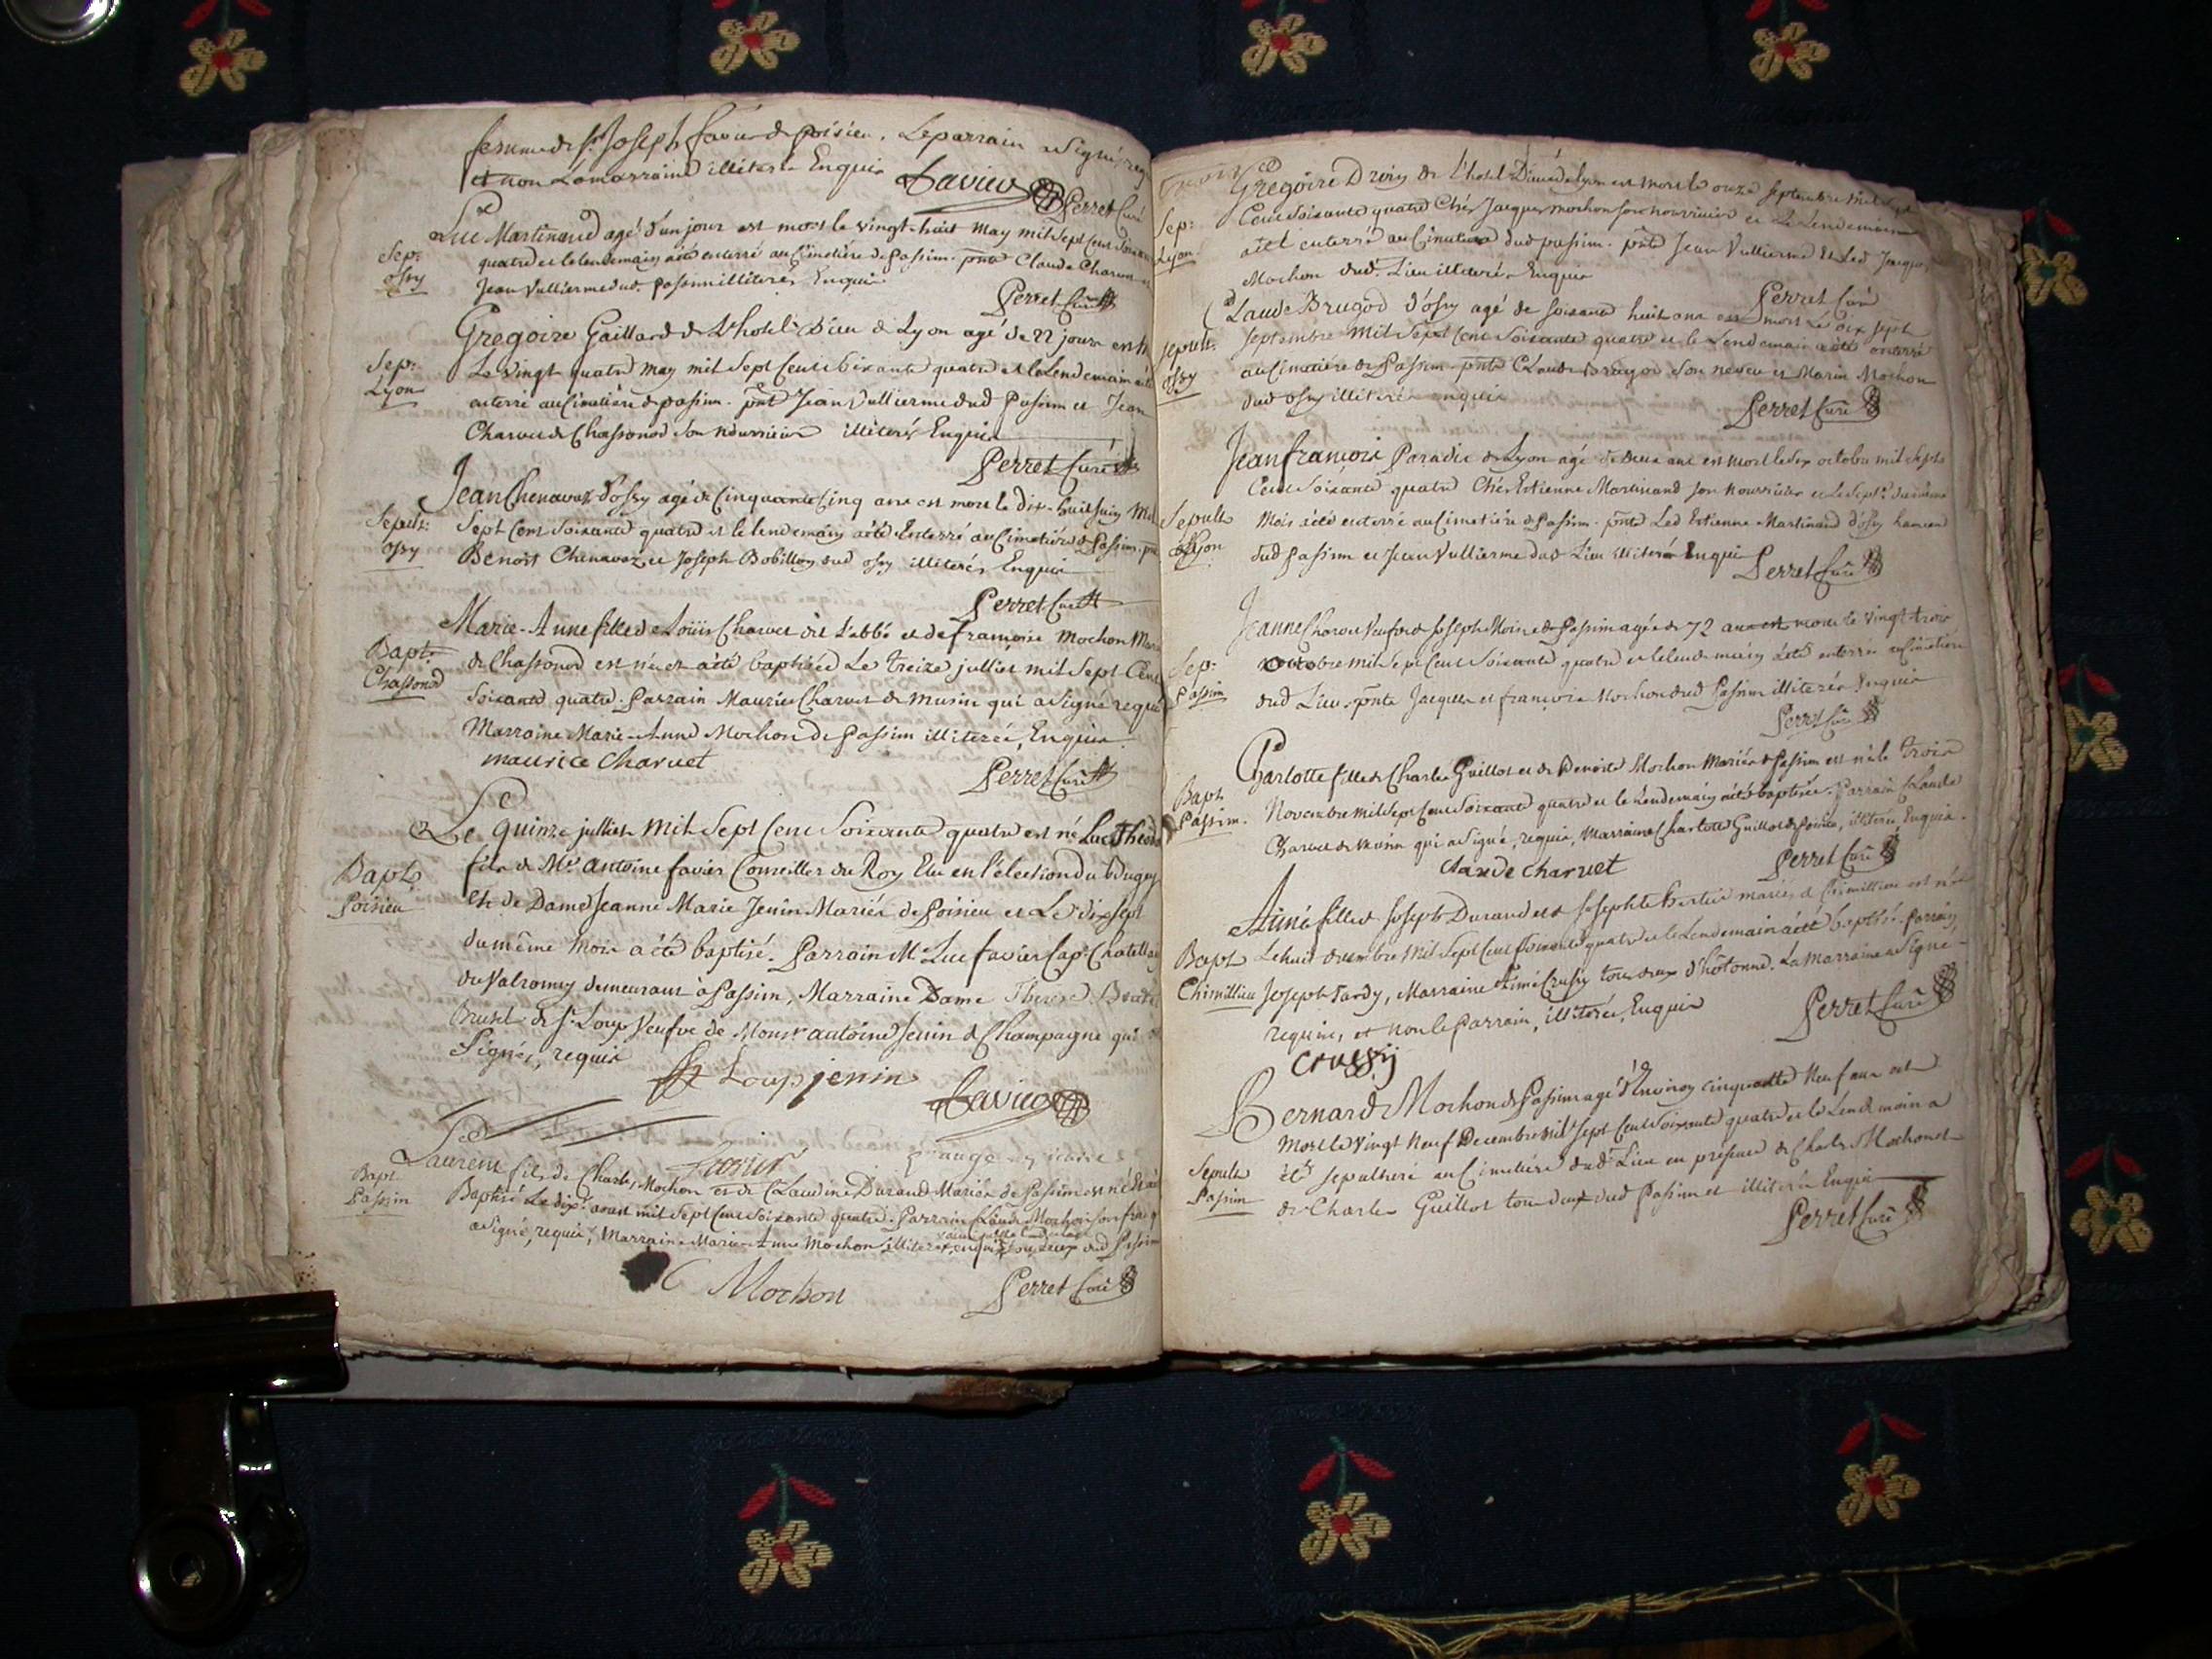 femme de Sr. Joseph favier de poisieu. Le parrain a Signé, req
et non La marraine illiterée Enquis
favier
Perret Curé
Luc Martinand agé d'un jour est mort le vingt-huit May mil Sept Cent Soixante
Sep:
ossy
quatre et le lendemain a été enterré au Cimetière de Passim. pnts Claude Charvet et
Jean Vullierme dud. Passim illiterés Enquis
Perret Curé
Gregoire Gaillard de L'hotel-Dieu de Lyon agé de 22 jours est m
Sep:
Lyon
Le vingt quatre May mil Sept Cent Soixante quatre et le Lendemain a été
enterré au Cimetière de passim. pnts Jean Vullierme dud Passim et Jean
Charvet de Chassonod Son Nourricier illiterés Enquis
Perret Curé
Jean Chenavaz d'ossy agé de Cinquante Cinq ans est mort le Dix-huit juin Mil
Sepult:
ossy
Sept Cent Soixante quatre et le lendemain a été Enterré au Cimetière de Passim. pnts
Benoit Chenavaz et Joseph Bobillon dud ossy illiterés Enquis
Perret Curé
Marie-Anne fille de Loüis Charvet dit L'abbé et de françoise Mochon Mari
Bapt.
Chassonod
de Chassonod est née et a été baptisée Le treize julliet mil Sept Cent
Soixante quatre. Parrain Maurice Charvet de Musin qui a Signé requis
Marraine Marie-Anne Mochon de Passim illiterée, Enquise
maurice Charvet
Perret Curé
Le quinze julliet Mil Sept Cent Soixante quatre est né Luc Theod
Bapt.
Poisieu
fils de Mr. antoine favier Conseiller du Roy Elu en l'élection du Bugey
Et de Dame Jeanne Marie Jenin Mariés de Poisieu et Le dix Sept
du même Mois a été baptisé. Parrain M. Luc favier Cap. Chatelain
du Valromey demeurant à Passim, Marraine Dame Therese
Brunet de St. Loup Veufve de Monsr antoine Jenin de Champagne qui
Signés, requis
St Loup jenin
favier
favier
Laurent fils de Charles Mochon et de Claudine Durand Mariés de Passim est né Et a été
Bapt.
Passim
Baptisé Le dix aoust mil Sept Cent Soixante quatre. Parrain Claude Mochon Son frere q
a Signé, requis, Marraine Marie-Anne Mochon illiterée, enquise tous deux dud Passim
C Mochon
Perret Curé
Gregoire Drivin de l'hotel-Dieu de Lyon est mort le onze Septembre mil Sept
Sep:
Lyon
Cent Soixante quatre Chés Jacques mochon son nourricier et Le Lendemain
a été enterré au Cimetiere dud passim. pnts Jean Vullierme Et Led Jacques
Mochon dud. Lieu illiterés Enquis
Perret Curé
Claude Brugod d'ossy agé de soixante huit ans est mort Le dix sept
Sepult.
ossy
Septembre Mil Sept Cent Soixante quatre et le Lendemain a été enterré
au Cimetière de Passim pnts Claude Brugod Son neveu et Marin Mochon
dud ossy illiterés enquis
Perret Curé
Jean françois Paradis de Lyon agé de Deux ans est mort le Six octobre mil Sept
Cent Soixante quatre Chés Estienne Martinand Son Nourricier et Le Sept. du même
Sepult
Lyon
Mois a été enterré au Cimetière de Passim. pnts Led Estienne Martinand d'ossy hameau
dud Passim et Jean Vullierme dud Lieu illiterés Enquis
Perret Curé
Jeanne Charvet Veufve de Joseph Noir de Passim agée de 72 ans est morte le vingt trois
Sep:
Passim
octobre mil Sept Cent Soixante quatre et le lendemain a été enterrée au Cimetière
dud Lieu. pnts Jacques et françois Mochon dud Passim illiterés Enquis
Perret Curé
Charlotte fille de Charles Guillot et de Benoite Mochon Mariés de Passim est née le trois
Bapt.
Passim.
Novembre mil Sept Cent Soixante quatre et le Lendemain a été baptisée. Parrain Claude
Charvet de Musin qui a Signé, requis, Marraine Charlotte Guillot de Poisieu, illiterée Enquise.
Claude charvet
Perret Curé
Aimé fille de Joseph Durand et de Josephte Bertier mariés de Chimillieu est née
Bapt
Chimillieu
Le huit decembre Mil Sept Cent Soixante quatre et le Lendemain a été baptisée. Parrain
Joseph Tardy, Marraine Aimé Crussy tous deux d'hôtonne. La Marraine a Signé
requise, et non le Parrain, illiteré, Enquis
Perret Curé
Crussij
Bernard Mochon de Passim agé d'Environ cinquante Neuf ans est
Mort le vingt Neuf Decembre Mil Sept Cent Soixante quatre et le Lendemain a
Sepult
Passim
été sepulturé au Cimetière dud. Lieu en présence de Charles Mochon et
de Charles Guillot tous deux dud Passim et illiterés Enquis
Perret Curé